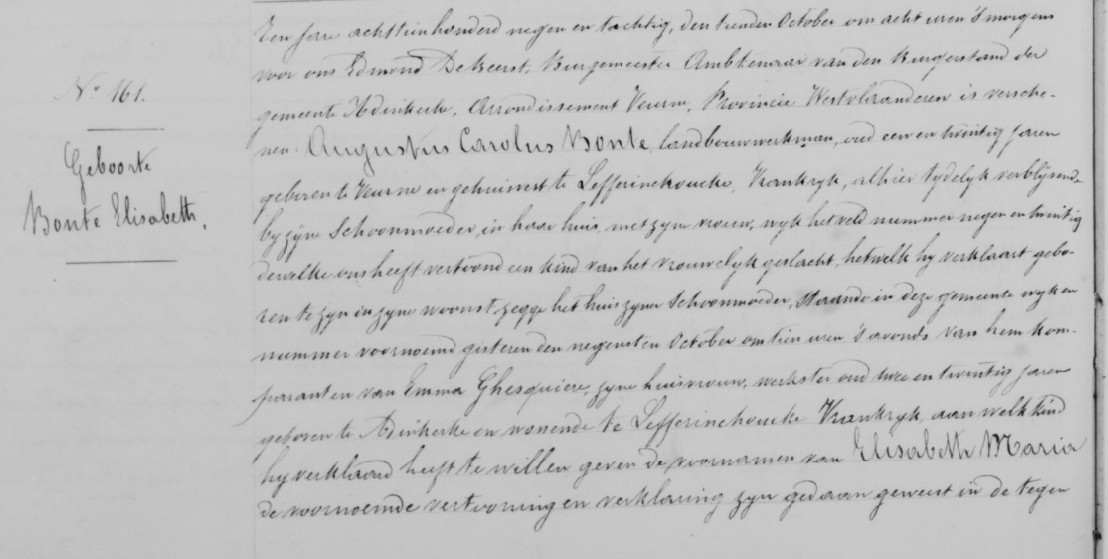 N° 161.
Geboorte
Bonte Elisabeth.
Ten jare achttienhonderd negen en tachtig, den tienden October om acht uren 's morgens
voor ons Edmond De Keerst, Burgemeester Ambtenaar van den Burgerstand der
gemeente Adinkerke, Arrondissement Veurne, Provincie Westvlaanderen is versche-
nen: Augustus Carolus Bonte, landbouwwerkman, oud een en twintig jaren
geboren te Veurne en gehuisvest te Lefferinckoucke, Frankryk, alhier tydelyk verblyvend
by zyne Schoonmoeder, in haar huis, met zyne vrouw, wyk het veld nummer negen en twintig
dewelke ons heeft vertoond een kind van het vrouwelyk geslacht, hetwelk hy verklaart gebo-
ren te zyn in zyne woonst, zegge het huis zyner Schoonmoeder, staande in deze gemeente wyk en
nummer voornoemd gisteren den negensten October om tien uren 's avonds van hem kom-
parant en van Emma Ghesquiere, zyne huisvrouw, werkster oud twee en twintig jaren
geboren te Adinkerke en wonende te Lefferinckoucke Frankryk, aan welk kind
hy verklaard heeft te willen geven de voornamen van Elisabeth Maria
de voornoemde vertooning en verklaring zyn gedaan geweest in de tegen